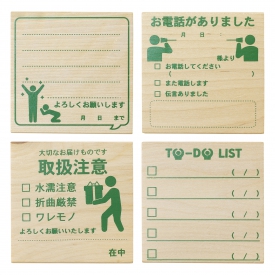 よろしくお願いします
月 日 まで
お電話がありました
月 日
様より
□ お電話してください
( )
□ また電話します
□ 伝言ありました
大切なお届けものです
取扱注意
□ 水濡注意
□ 折曲厳禁
□ ワレモノ
よろしくお願いいたします
在中
TO-DO LIST
□ ( / )
□ ( / )
□ ( / )
□ ( / )